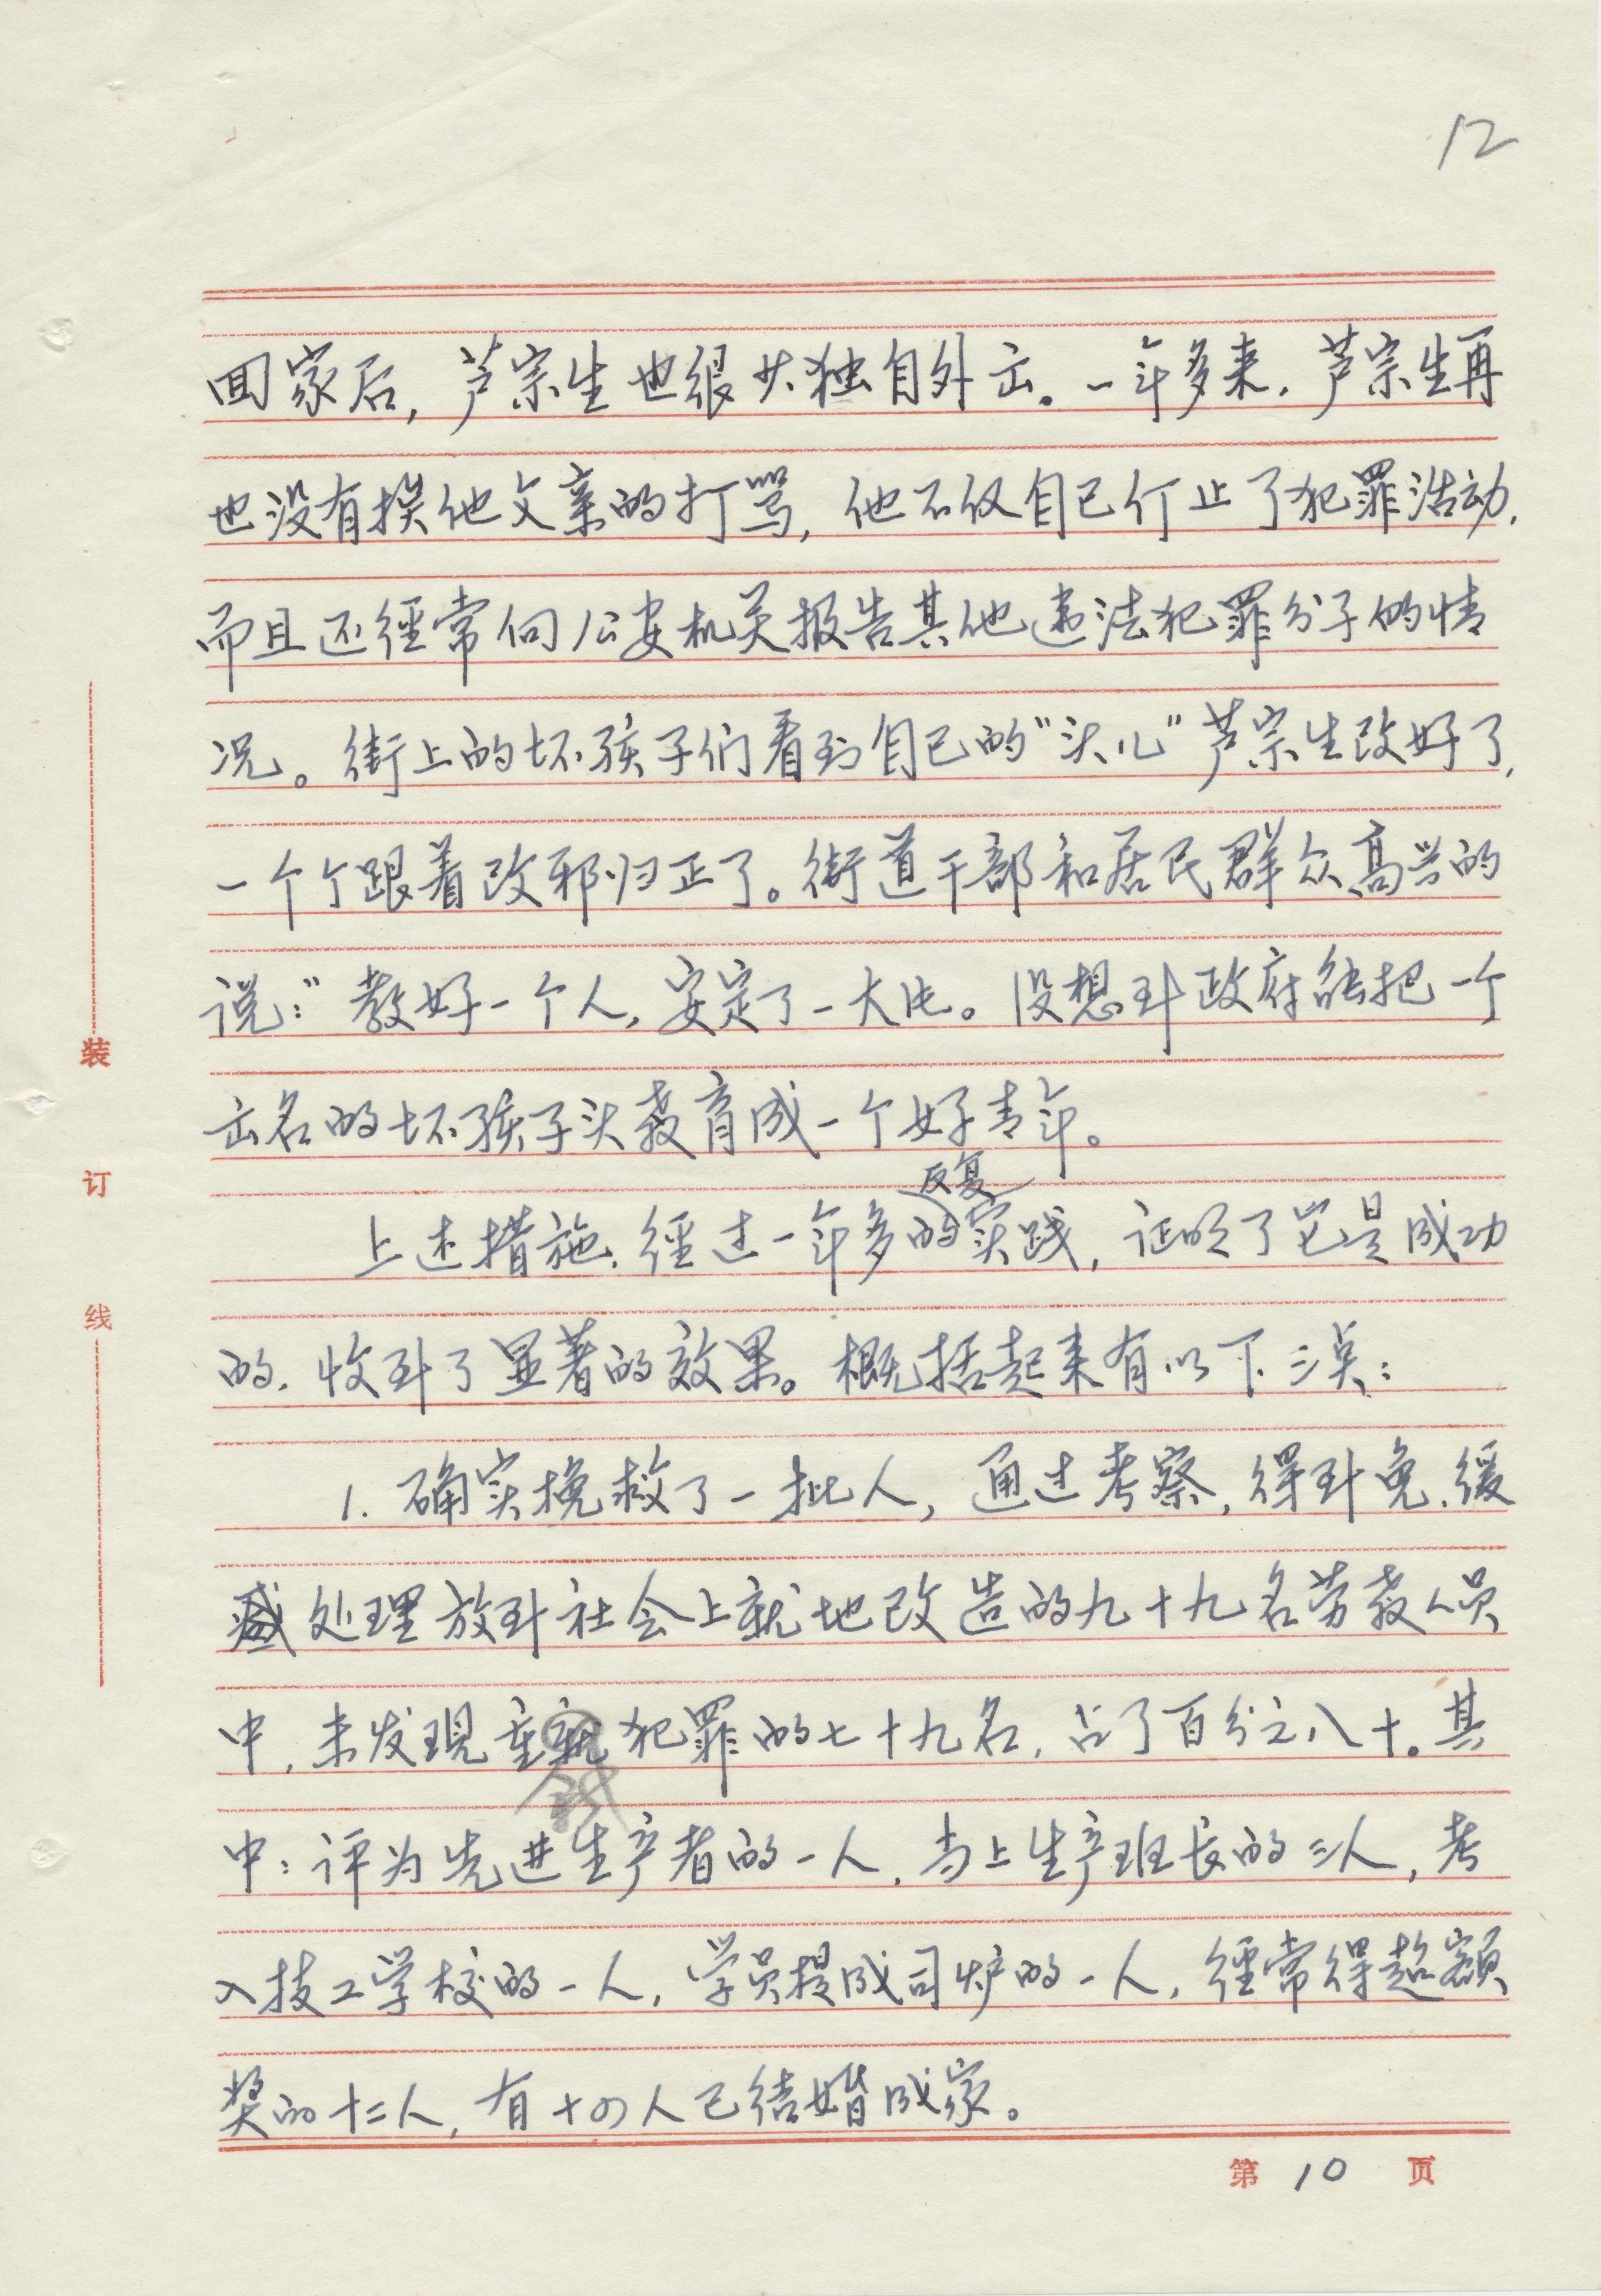 12
回家后，芦宗生也很少独自外出。一年多来，芦宗生再
也没有挨他父亲的打骂，他不仅自己停止了犯罪活动，
而且还经常向公安机关报告其他违法犯罪分子的情
况。街上的坏孩子们看到自己的“头儿”芦宗生改好了，
一个个跟着改邪归正了。街道干部和居民群众高兴的
说：“教好一个人，安定了一大片。没想到政府能把一个
出名的坏孩子头教育成一个好青年。
反复
上述措施，经过一年多的实践，证明了它是成功
的，收到了显著的效果。概括起来有以下三点：
1. 确实挽救了一批人，通过考察，得到免、缓
处理放到社会上就地改造的九十九名劳教人员
中，未发现重新犯罪的七十九名，占了百分之八十。其
中：评为先进生产者的一人，当上生产班长的三人，考
入技工学校的一人，学员提成司炉的一人，经常得超额
奖的十二人，有十四人已结婚成家。
第 10 页
装
订
线